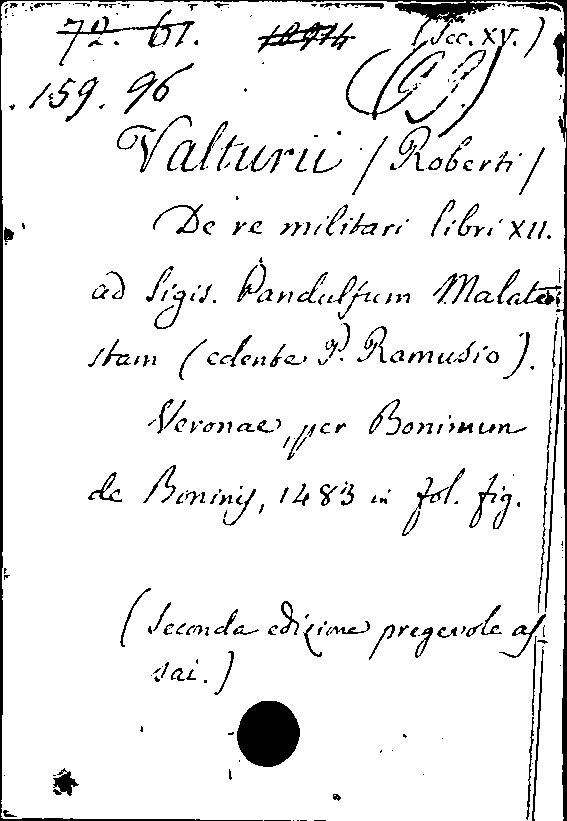 72. 61. 18914 (Sec. XV.)
159. 96
Valturii / Roberti /
De re militari libri XII.
ad Sigis. Pandulfum Malate-
stam (edente P. Ramusio).
Veronae, per Boninum
de Boninis, 1483 in fol. fig.
(Seconda edizione pregevole as-
sai.)